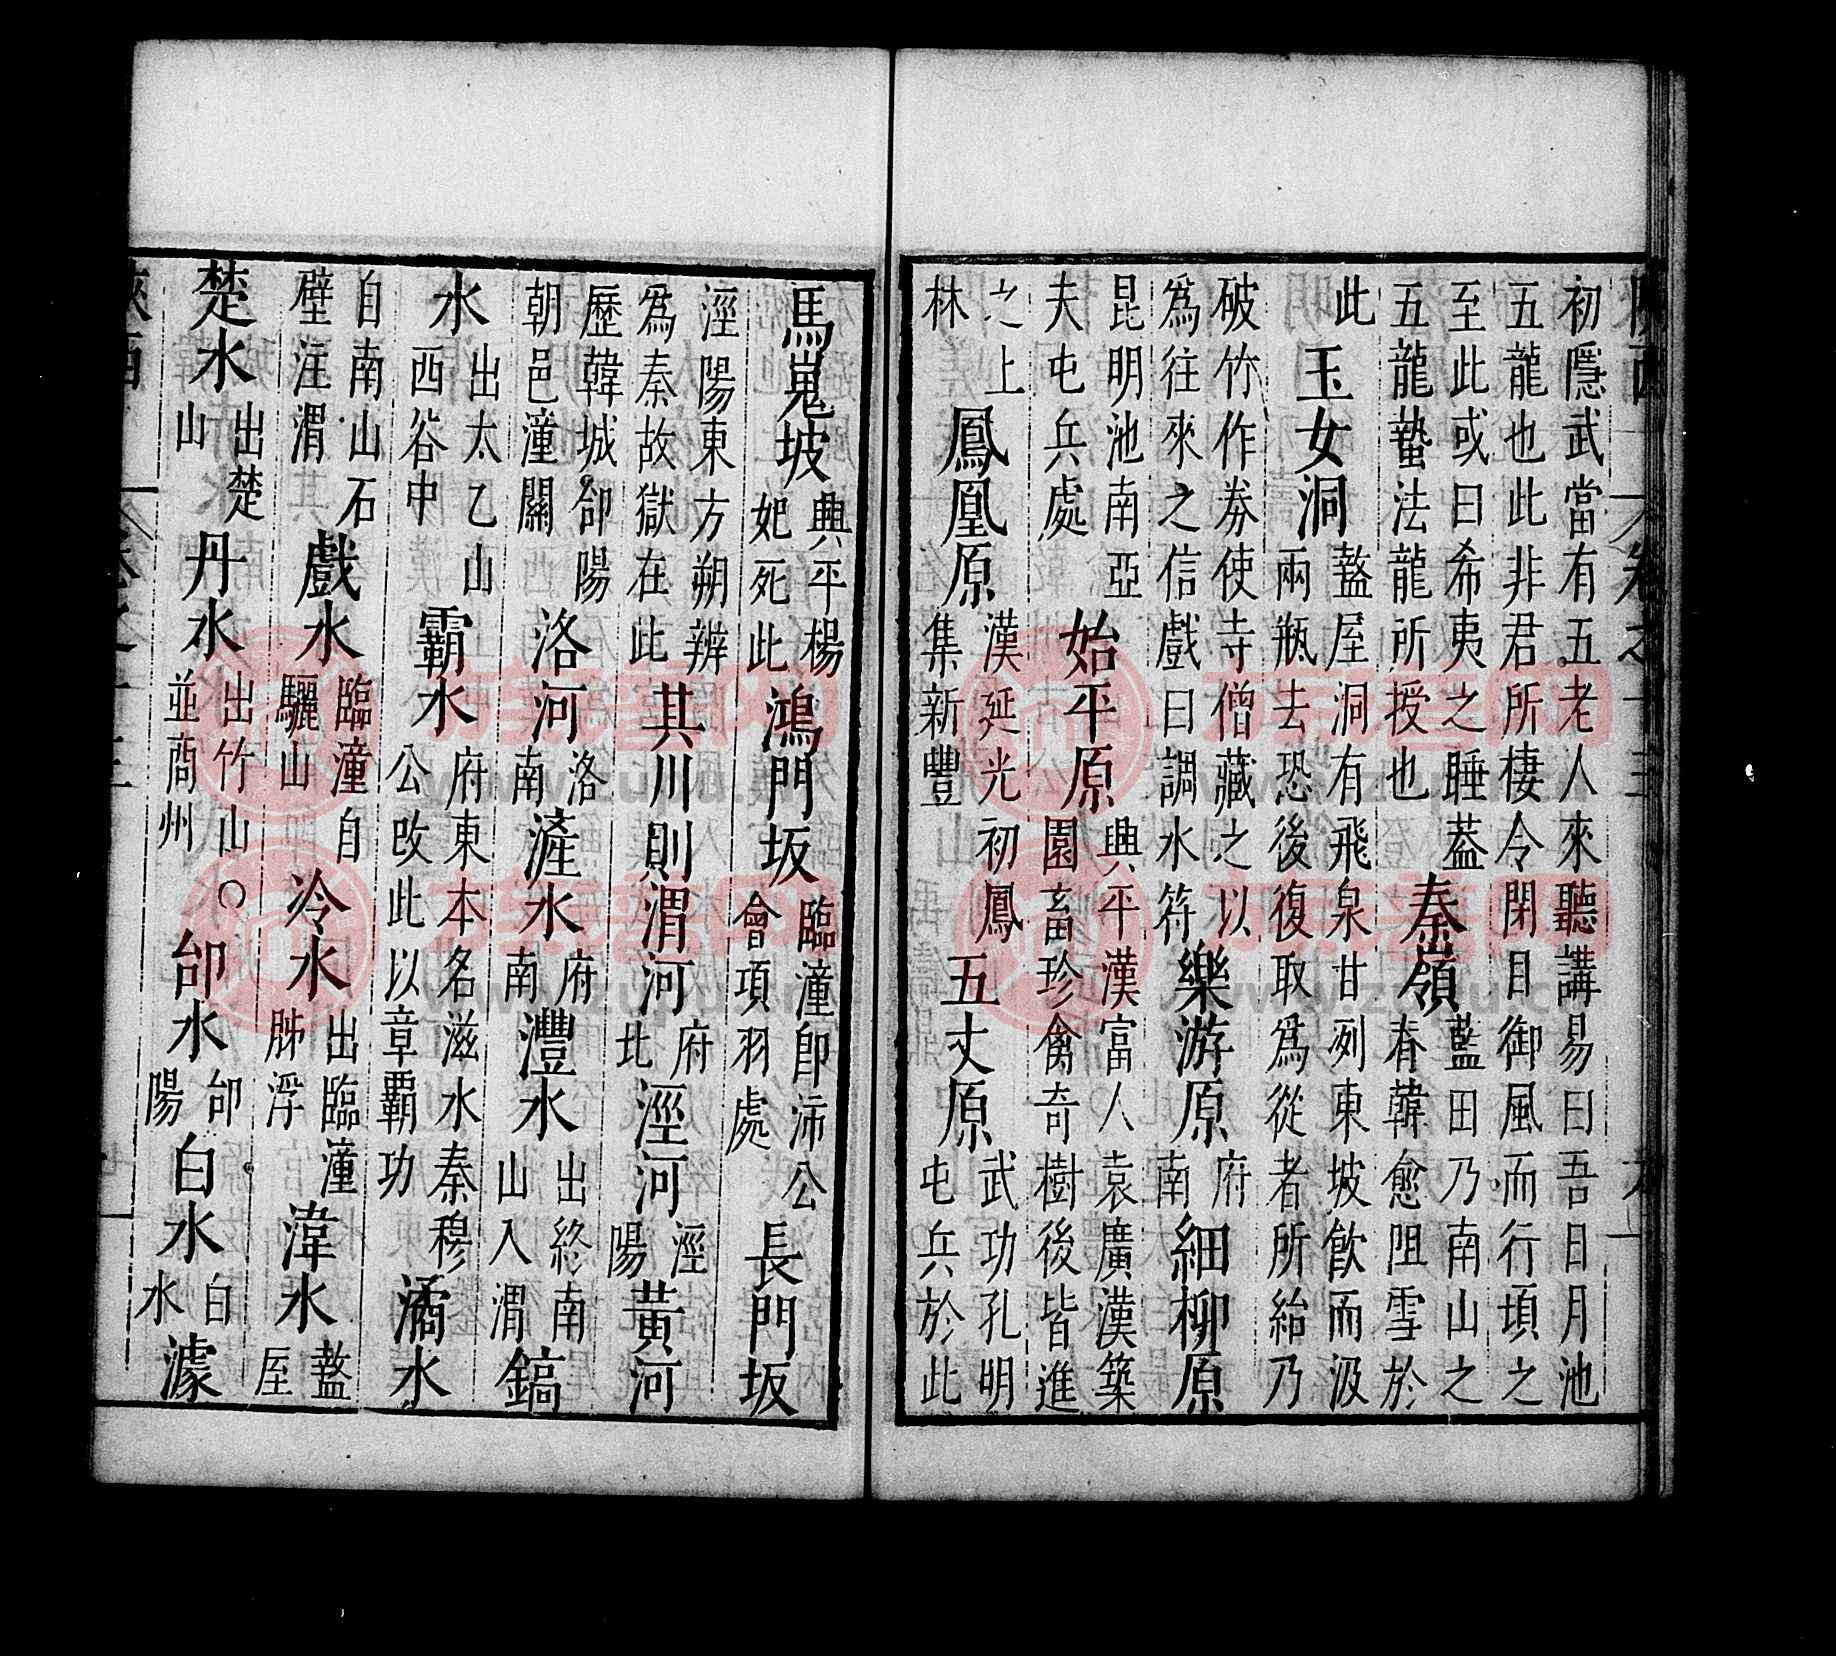 陝西 卷之十三 六
初隱武當有五老人來聽講易曰吾日月池
五龍也此非君所棲令閉目御風而行頃之
至此或曰希夷之睡蓋
五龍蟄法龍所授也
秦嶺
藍田乃南山之
脊韓愈阻雪於
此
玉女洞
盩厔洞有飛泉甘冽東坡飲而汲
兩瓶去恐後復取爲從者所紿乃
破竹作券使寺僧藏之以
爲往來之信戲曰調水符
樂游原
府
南
細柳原
昆明池南亞
夫屯兵處
始平原
興平漢富人袁廣漢築
園畜珍禽奇樹後皆進
之上
林
鳳凰原
漢延光初鳳
集新豐
五丈原
武功孔明
屯兵於此
馬嵬坡
興平楊
妃死此
鴻門坂
臨潼卽沛公
會項羽處
長門坂
涇陽東方朔辨
爲秦故獄在此
其川則渭河
府
北
涇河
涇
陽
黃河
歷韓城郃陽
朝邑潼關
洛河
洛
南
滻水
府
南
灃水
出終南
山入渭
鎬
水
出太乙山
西谷中
霸水
府東本名滋水秦穆
公改此以章霸功
潏水
自南山石
壁注渭
戲水
臨潼自
驪山
冷水
出臨潼
胇浮
湋水
盩
厔
楚水
出楚
山
丹水
出竹山○
並商州
郃水
郃
陽
白水
白
水
澽
陝西 卷之十三 七
www.zupu.cn
www.zupu.cn
www.zupu.cn
www.zupu.cn